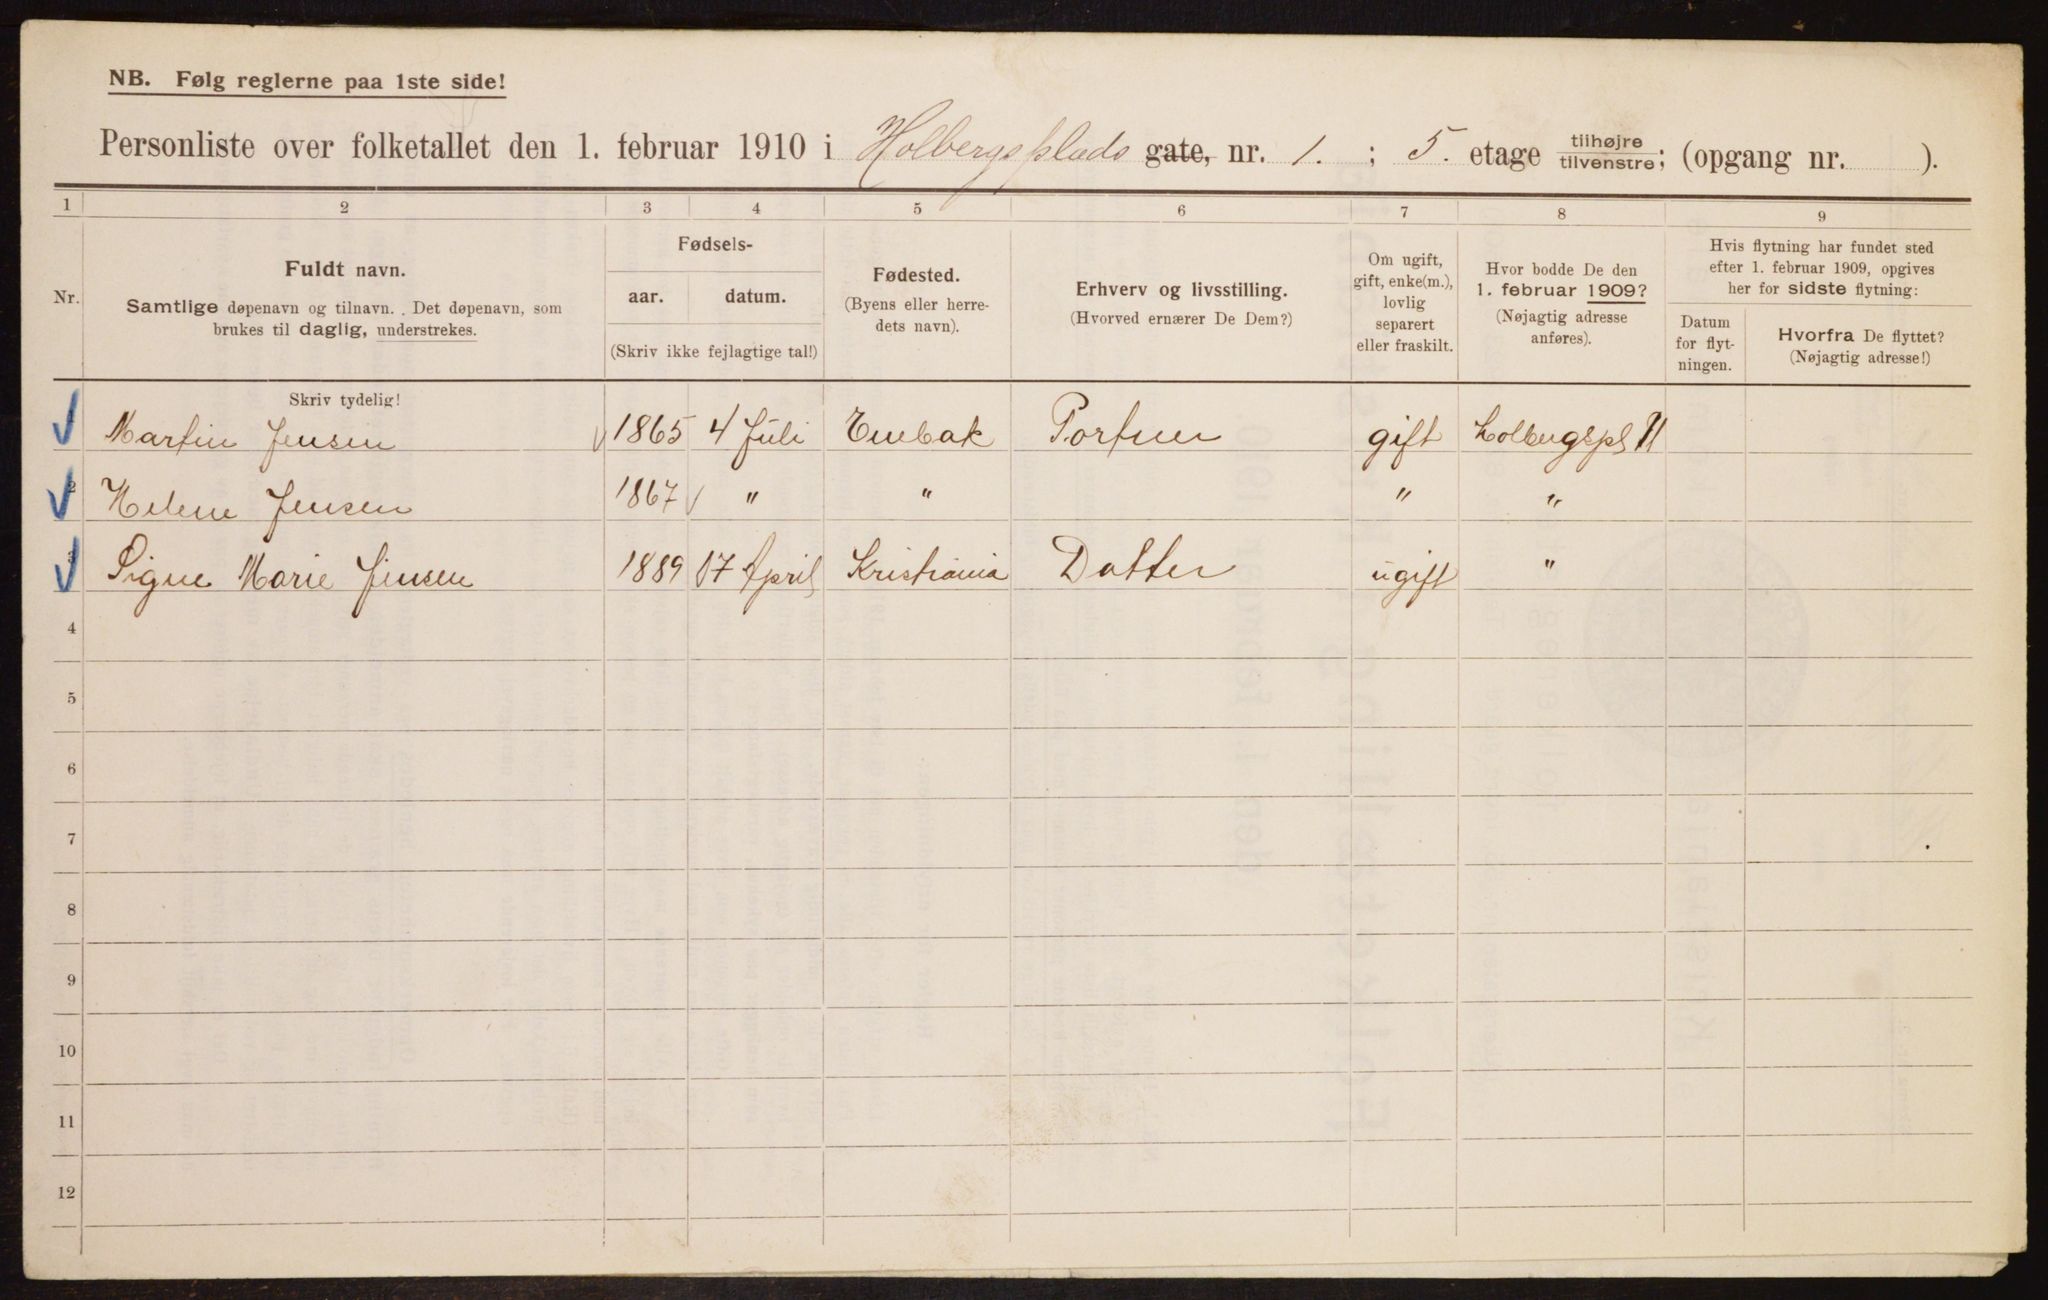 NB. Følg reglerne paa 1ste side!
Personliste over folketallet den 1. februar 1910 i Holbergsplads gate, nr. 1. ; 5. etage tilhøjre tilvenstre; (opgang nr. ).
1 2 3 4 5 6 7 8 9
Nr.
Fuldt navn.
Samtlige døpenavn og tilnavn. Det døpenavn, som
brukes til daglig, understrekes.
Fødsels-
aar. datum.
(Skriv ikke fejlagtige tal!)
Fødested.
(Byens eller herre-
dets navn).
Erhverv og livsstilling.
(Hvorved ernærer De Dem?)
Om ugift,
gift, enke(m.),
lovlig
separert
eller fraskilt.
Hvor bodde De den
1. februar 1909?
(Nøjagtig adresse
anføres).
Hvis flytning har fundet sted
efter 1. februar 1909, opgives
her for sidste flytning:
Datum
for flyt-
ningen.
Hvorfra De flyttet?
(Nøjagtig adresse!)
Skriv tydelig!
1 Martin Jensen 1865 4 Juli Enebak Portner gift Holbergspl 1
2 Helene Jensen 1867 " " " "
3 Signe Marie Jensen 1889 17 April Kristiania Datter ugift "
4
5
6
7
8
9
10
11
12